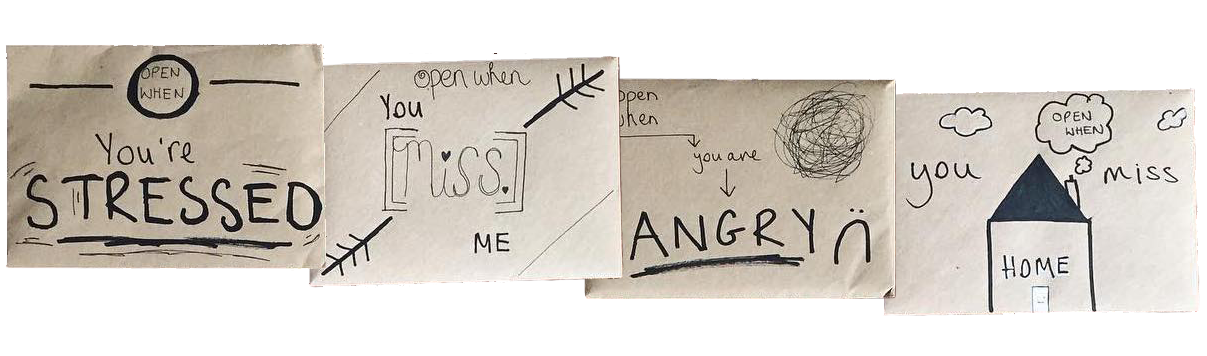 OPEN
WHEN
You're
STRESSED
open when
You
Miss
ME
open
when
you are
ANGRY
OPEN
WHEN
you miss
HOME